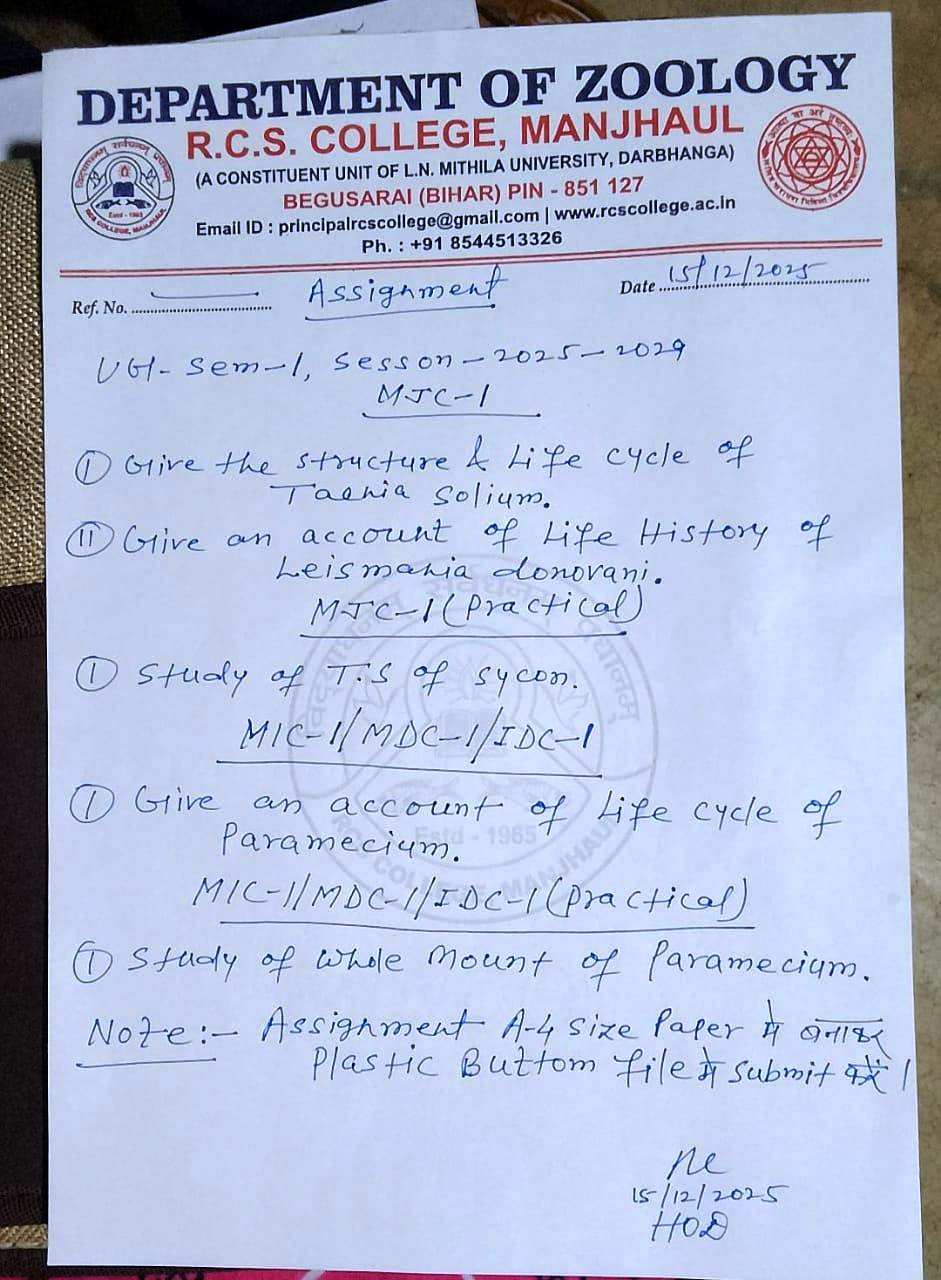 DEPARTMENT OF ZOOLOGY
R.C.S. COLLEGE, MANJHAUL
(A CONSTITUENT UNIT OF L.N. MITHILA UNIVERSITY, DARBHANGA)
BEGUSARAI (BIHAR) PIN - 851 127
Email ID : principalrcscollege@gmail.com | www.rcscollege.ac.in
Ph. : +91 8544513326
Estd - 1965
RCS COLLEGE, MANJHAUL
Ref. No. Assignment Date 15/12/2025
UG-Sem-1, Sesson-2025-2029
MJC-1
① Give the structure & Life cycle of
Taenia Solium.
② Give an account of Life History of
Leismania donovani.
MJC-1 (Practical)
① Study of T.S of sycon.
MIC-1/MDC-1/IDC-1
① Give an account of Life cycle of
Paramecium.
MIC-1/MDC-1/IDC-1 (Practical)
① Study of Whole Mount of Paramecium.
Note:- Assignment A-4 Size Paper में बनाकर
Plastic Buttom file में submit करें।
15/12/2025
HOD
Estd - 1965
RCS COLLEGE, MANJHAUL